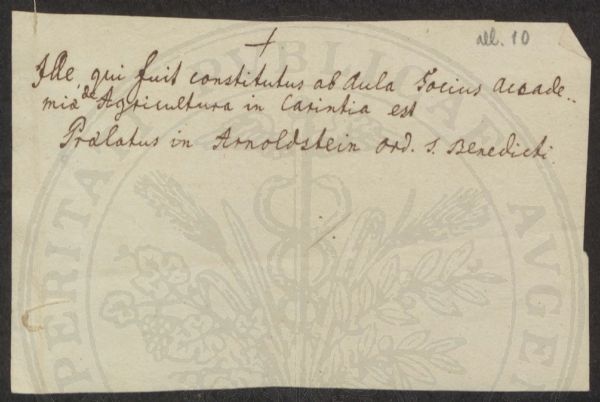 +
all. 10
Ille qui fuit constitutus ab Aula Socius Accade..
miæ de Agricultura in Carintia est
Prælatus in Arnoldstein Ord. S. Benedicti.
PERITAT PUBLICAE AUGE